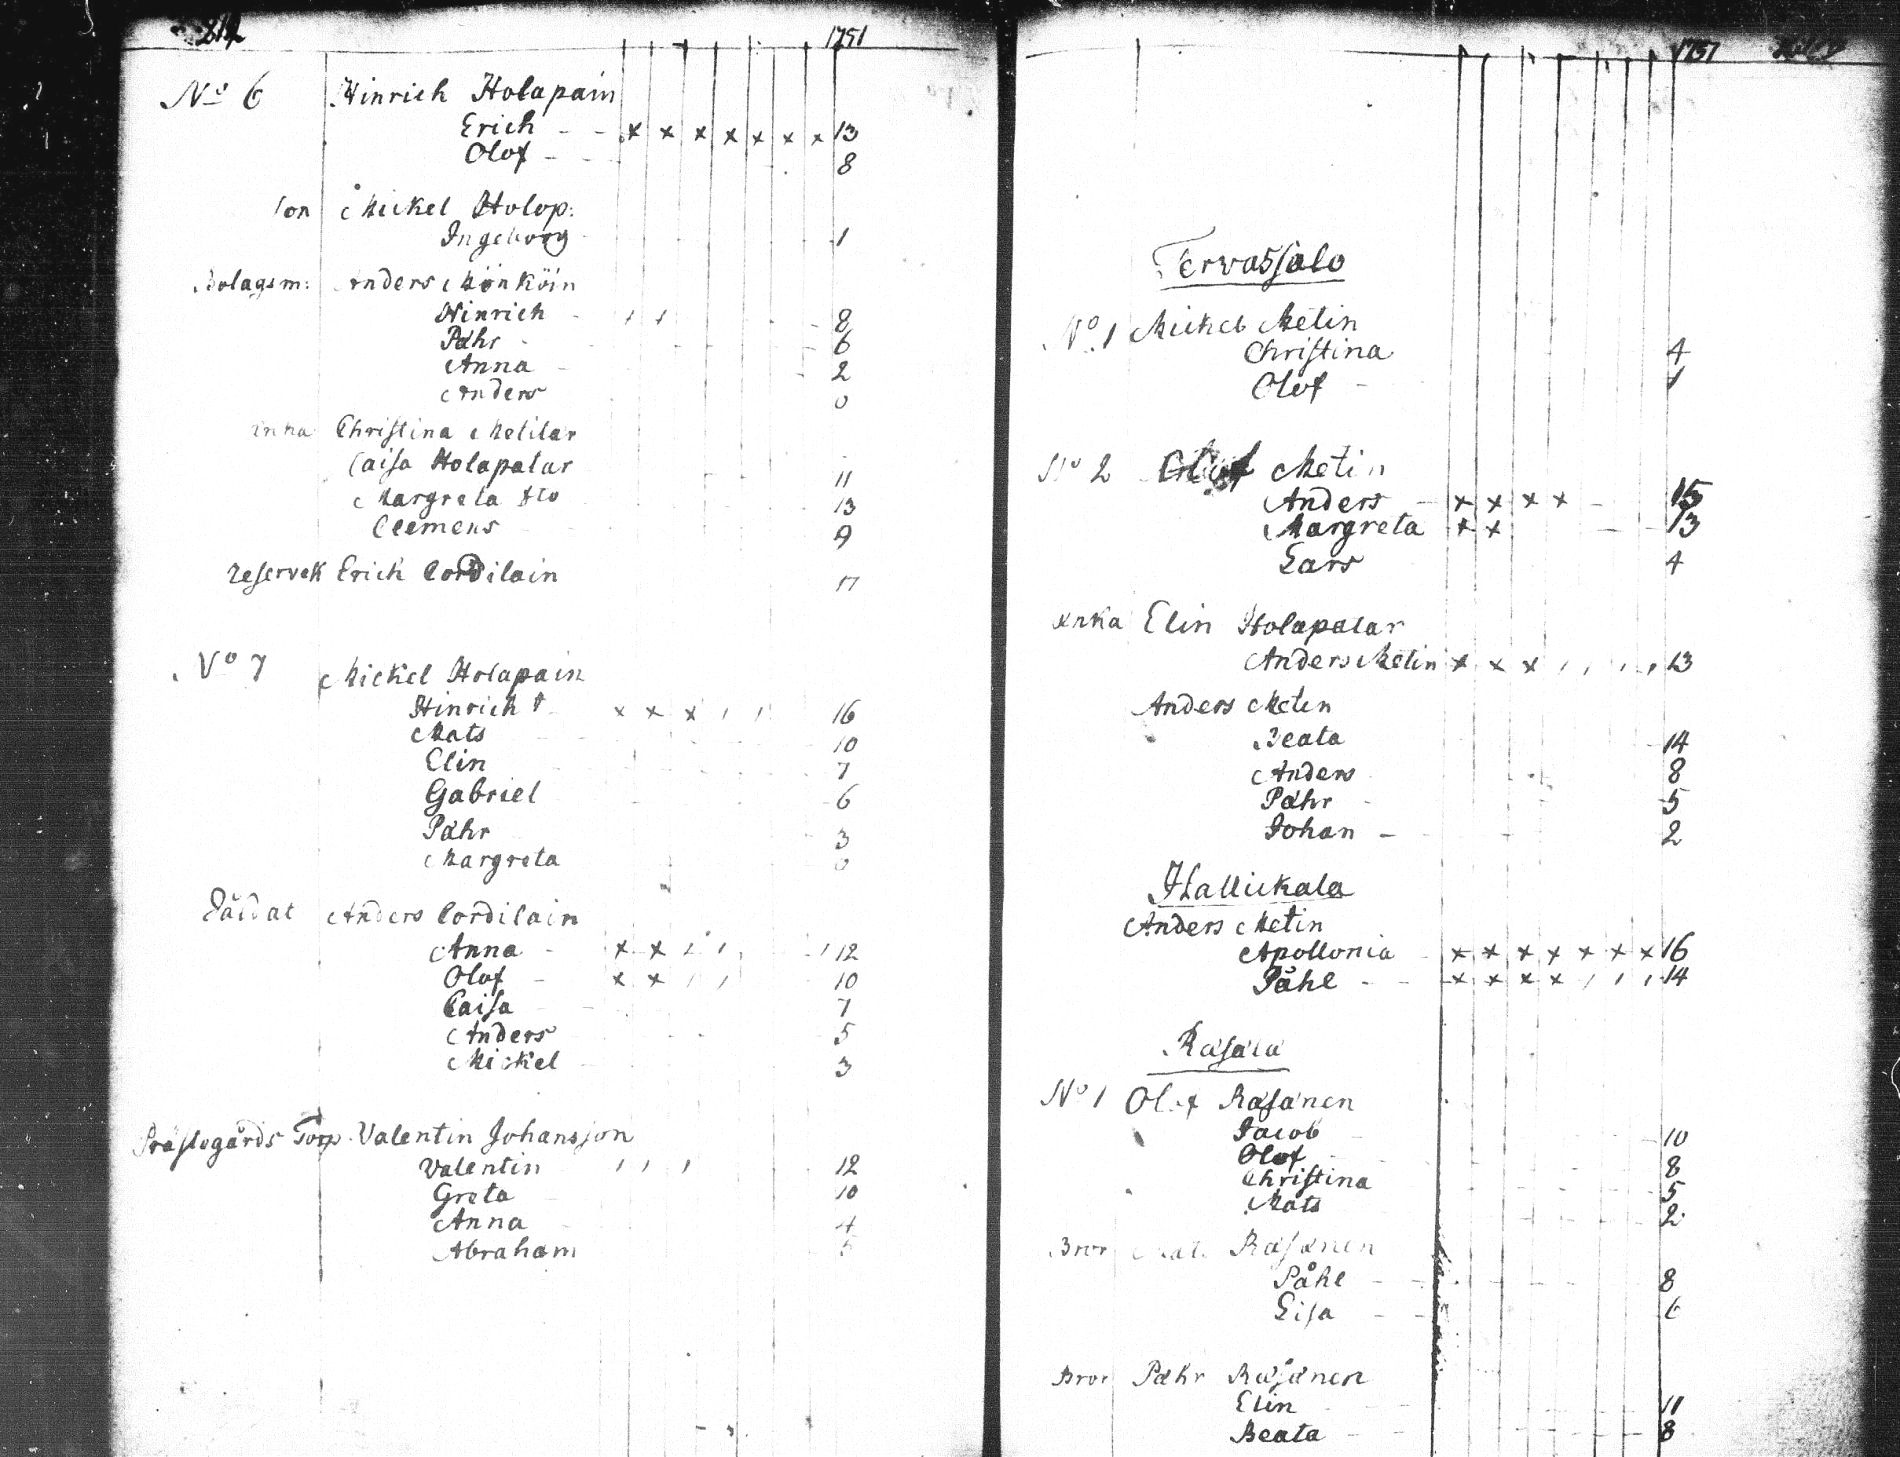 214 1751
No 6 Hinrich Holapain
Erich - - x x x x x x x 13
Olof - - - 8
Son Mickel Holop:
Ingeborg 1
Bolagsm: Anders Mönköin
Hinrich - 8
Pähr - 6
Anna - 2
Anders 0
Enka Christina Metitar
Caisa Holapatar 11
Margreta dto 13
Clemens 9
reservek Erich Cordilain 17
No 7 Mickel Holapain
Hinrich † x x x 16
Mats 10
Elin 7
Gabriel 6
Pähr 3
Margreta 0
Såldat Anders Cordilain
Anna - x x 12
Olof - x x 10
Caisa 7
Anders 5
Mickel 3
Prästogårds Torp Valentin Johansson
Valentin 12
Greta 10
Anna 4
Abraham 5
1751
Tervassalo
No 1 Mickel Metin
Christina 4
Olof - 1
No 2 Olof Metin
Anders - x x x x - 15
Margreta x x 13
Lars 4
Enka Elin Holapatar
Anders Metin x x x 13
Anders Metin
Beata 14
Anders 8
Pähr 5
Johan - 2
Hallickala
Anders Metin
Apollonia x x x x x x x 16
Påhl - - x x x x 14
Rasala
No 1 Olof Räsänen
Jacob 10
Olof 8
Christina 5
Mats 2
Bror Mats Räsänen
Påhl - 8
Lisa - 6
Bror Pähr Räsänen
Elin 11
Beata - 8